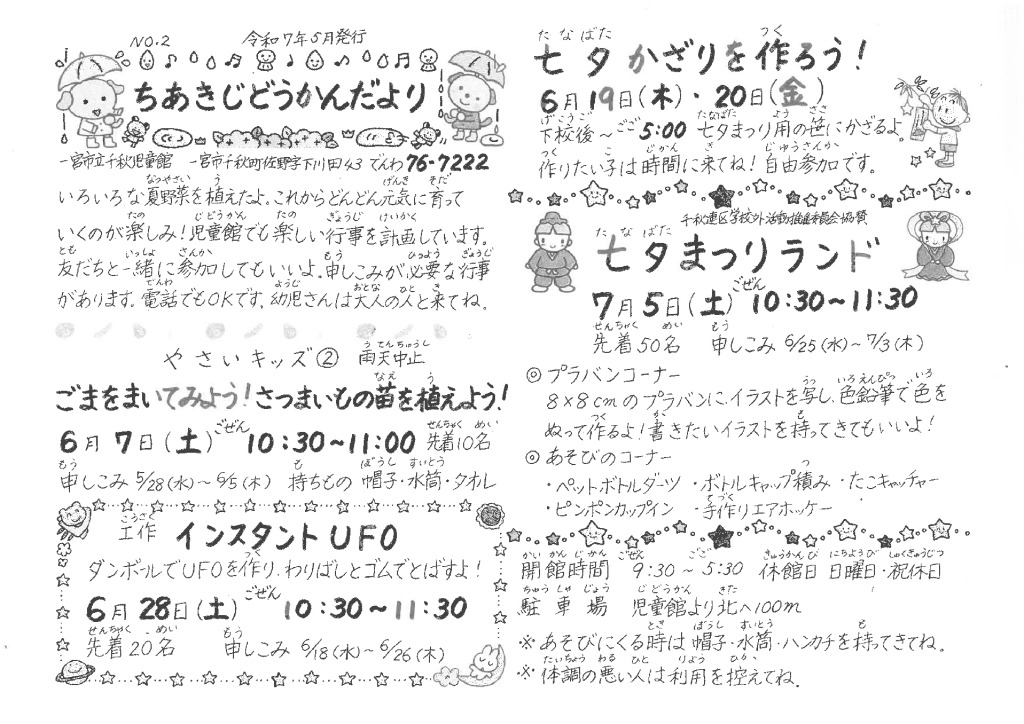 NO.2 令和7年5月発行
ちあきじどうかんだより
一宮市立千秋児童館 一宮市千秋町佐野字下川田43 でんわ76-7222
いろいろな夏野菜を植えたよ。これからどんどん元気に育って
いくのが楽しみ!児童館でも楽しい行事を計画しています。
友だちと一緒に参加してもいいよ。申しこみが必要な行事
があります。電話でもOKです。幼児さんは大人の人と来てね。
やさいキッズ② 雨天中止
ごまをまいてみよう!さつまいもの苗を植えよう!
6月7日(土)ごぜん 10:30~11:00 先着10名
申しこみ 5/28(水)~6/5(木) 持ちもの 帽子・水筒・タオル
工作 インスタントUFO
ダンボールでUFOを作り、わりばしとゴムでとばすよ!
6月28日(土)ごぜん 10:30~11:30
先着20名 申しこみ 6/18(水)~6/26(木)
七夕かざりを作ろう!
6月19日(木)・20日(金)
下校後~ごご5:00 七夕まつり用の笹にかざるよ。
作りたい子は時間に来てね!自由参加です。
千秋連区学校外活動推進委員会協賛
七夕まつりランド
7月5日(土)ごぜん 10:30~11:30
先着50名 申しこみ 6/25(水)~7/3(木)
◎プラバンコーナー
8×8cmのプラバンに、イラストを写し、色鉛筆で色を
ぬって作るよ!書きたいイラストを持ってきてもいいよ!
◎あそびのコーナー
・ペットボトルダーツ ・ボトルキャップ積み ・たこキャッチャー
・ピンポンカップイン ・手作りエアホッケー
開館時間 ごぜん9:30~ごご5:30 休館日 日曜日・祝休日
駐車場 児童館より北へ100m
※あそびにくる時は帽子・水筒・ハンカチを持ってきてね。
※体調の悪い人は利用を控えてね。